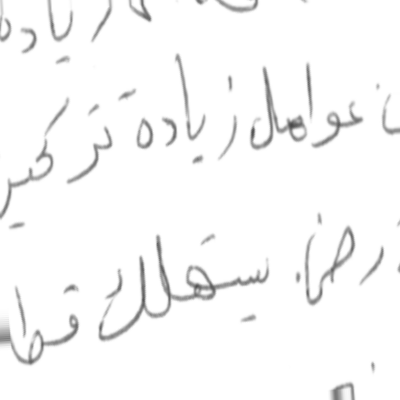 زيادة
عوامل زيادة تركيز
رض. يستهلك قطا